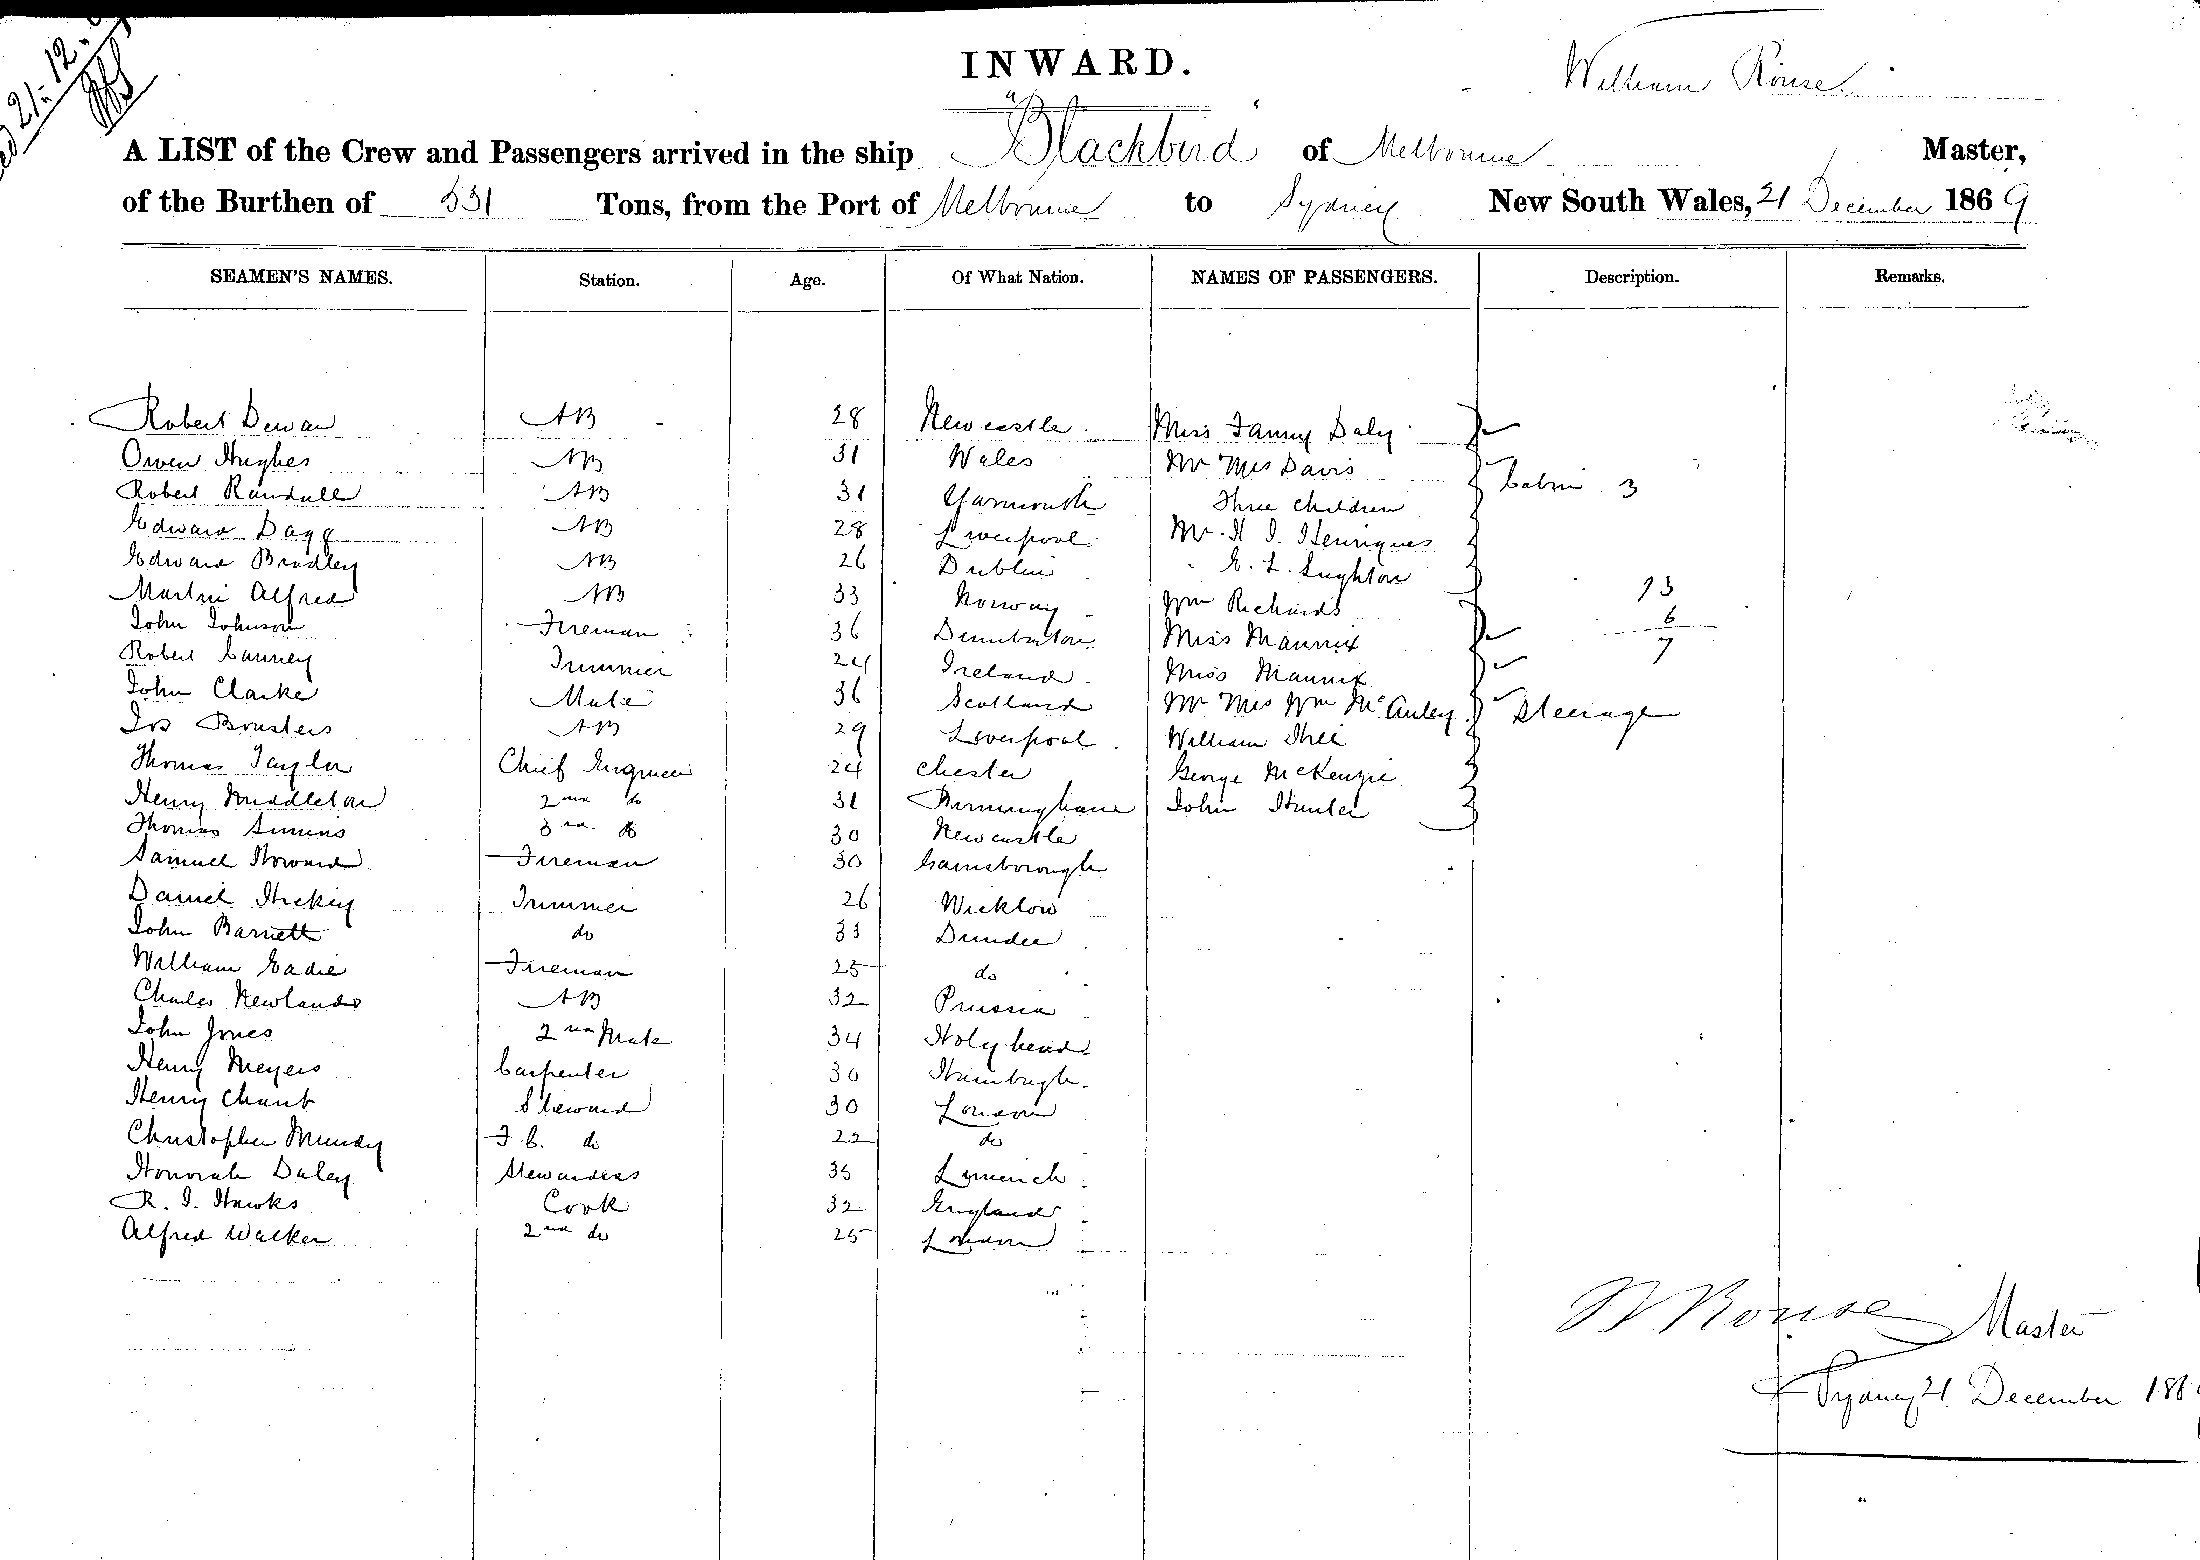 21. 12.
INWARD.
William Rouse
A LIST of the Crew and Passengers arrived in the ship "Blackbird" of Melbourne Master,
of the Burthen of 531 Tons, from the Port of Melbourne to Sydney New South Wales, 21 December 1869
SEAMEN'S NAMES. Station. Age. Of What Nation. NAMES OF PASSENGERS. Description. Remarks.
Robert Dewar AB 28 Newcastle Miss Fanny Daly
Owen Hughes AB 31 Wales Mr Mrs Davis
Robert Randall AB 31 Yarmouth Three Children Cabin 3
Edward Dagg AB 28 Liverpool Mr. H J. Henriques
Edward Bradley AB 26 Dublin E. L.
Martin Alfred AB 33 Norway Wm Richards 13
John Johnson Fireman 36 Dumbarton Miss Mannix 6
Robert Canney Trimmer 24 Ireland Miss Mannix 7
John Clarke Mate 36 Scotland Mr Mrs Wm McAuley Steerage
Jos AB 29 Liverpool William
Thomas Taylor Chief Engineer 24 Chester George McKenzie
Henry Middleton 2nd do 31 Birmingham John Hunter
Thomas Simms 3rd do 30 Newcastle
Samuel Howard Fireman 30 Gainsborough
Daniel Hickey Trimmer 26 Wicklow
John Barnett do 33 Dundee
William Eadie Fireman 25 do
Charles Newlands AB 32 Prussia
John Jones 2nd Mate 34 Holyhead
Henry Meyers Carpenter 30
Henry Steward 30 London
Christopher Mundy F. C. do 22 do
Honorah Daley Stewardess 35 Limerick
R. J. Hawks Cook 32 England
Alfred Walker 2nd do 25 London
W Rouse Master
Sydney 21 December 186